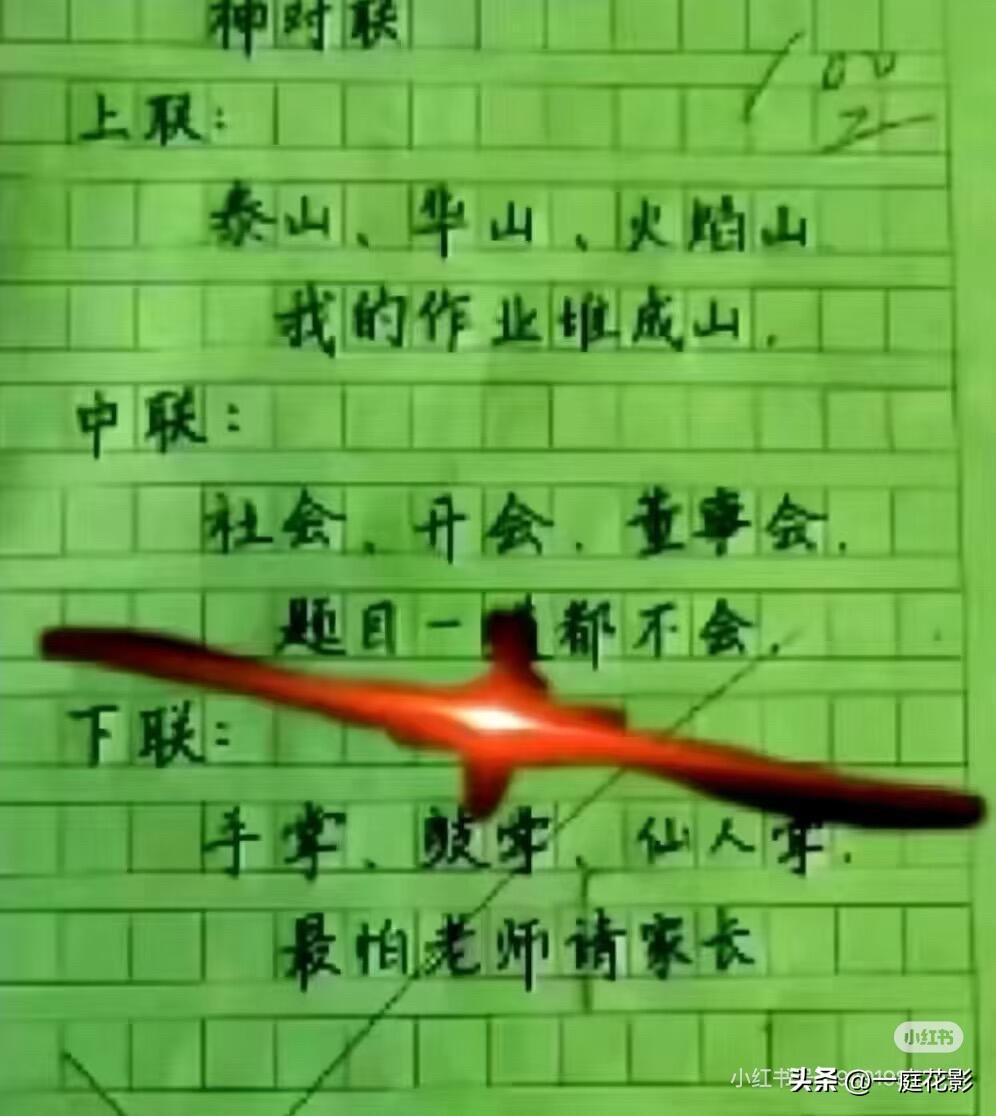 神对联
100
上联：
泰山、华山、火焰山
我的作业堆成山.
中联：
社会、开会、董事会.
题目一都不会.
下联：
手掌、鼓掌、仙人掌.
最怕老师请家长
小红书
小红书
头条 @一庭花影